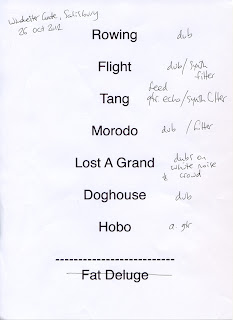 Winchester Gate, Salisbury
26 Oct 2012
Rowing dub
Flight dub/synth
filter
feed
Tang gtr echo/synth filter
Morodo dub / filter
Lost A Grand dubs on
white noise
& crowd
Doghouse dub
Hobo a. gtr
---------------------------
Fat Deluge